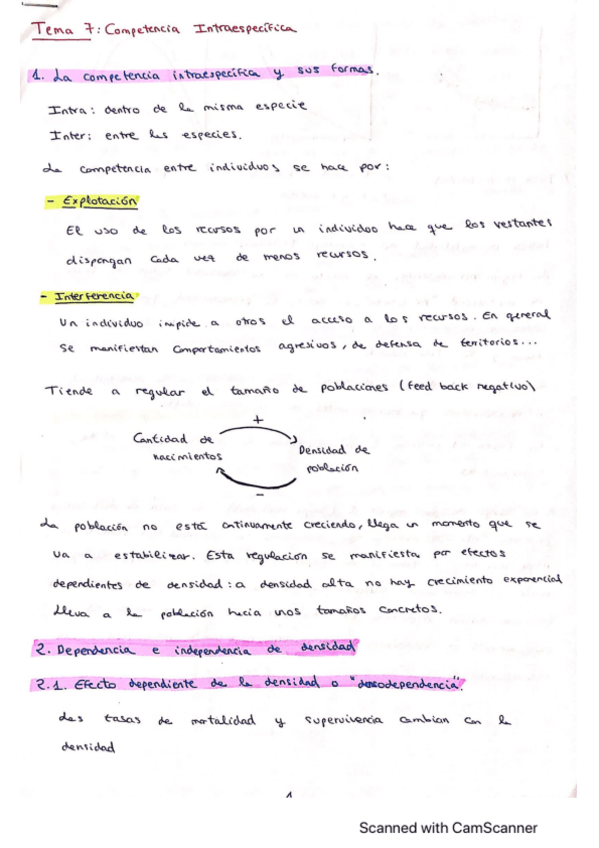 Tema 7: Competencia Intraespecífica
1. La competencia intraespecífica y sus formas.
Intra: dentro de la misma especie
Inter: entre las especies.
La competencia entre individuos se hace por:
- Explotación
El uso de los recursos por un individuo hace que los restantes
dispongan cada vez de menos recursos.
- Interferencia
Un individuo impide a otros el acceso a los recursos. En general
se manifiestan comportamientos agresivos, de defensa de territorios...
Tiende a regular el tamaño de poblaciones (feed back negativo)
+
Cantidad de
nacimientos
Densidad de
población
-
La población no está continuamente creciendo, llega un momento que se
va a estabilizar. Esta regulación se manifiesta por efectos
dependientes de densidad: a densidad alta no hay crecimiento exponencial
lleva a la población hacia unos tamaños concretos.
2. Dependencia e independencia de densidad
2.1. Efecto dependiente de la densidad o "densodependencia".
Las tasas de mortalidad y supervivencia cambian con la
densidad
1
Scanned with CamScanner